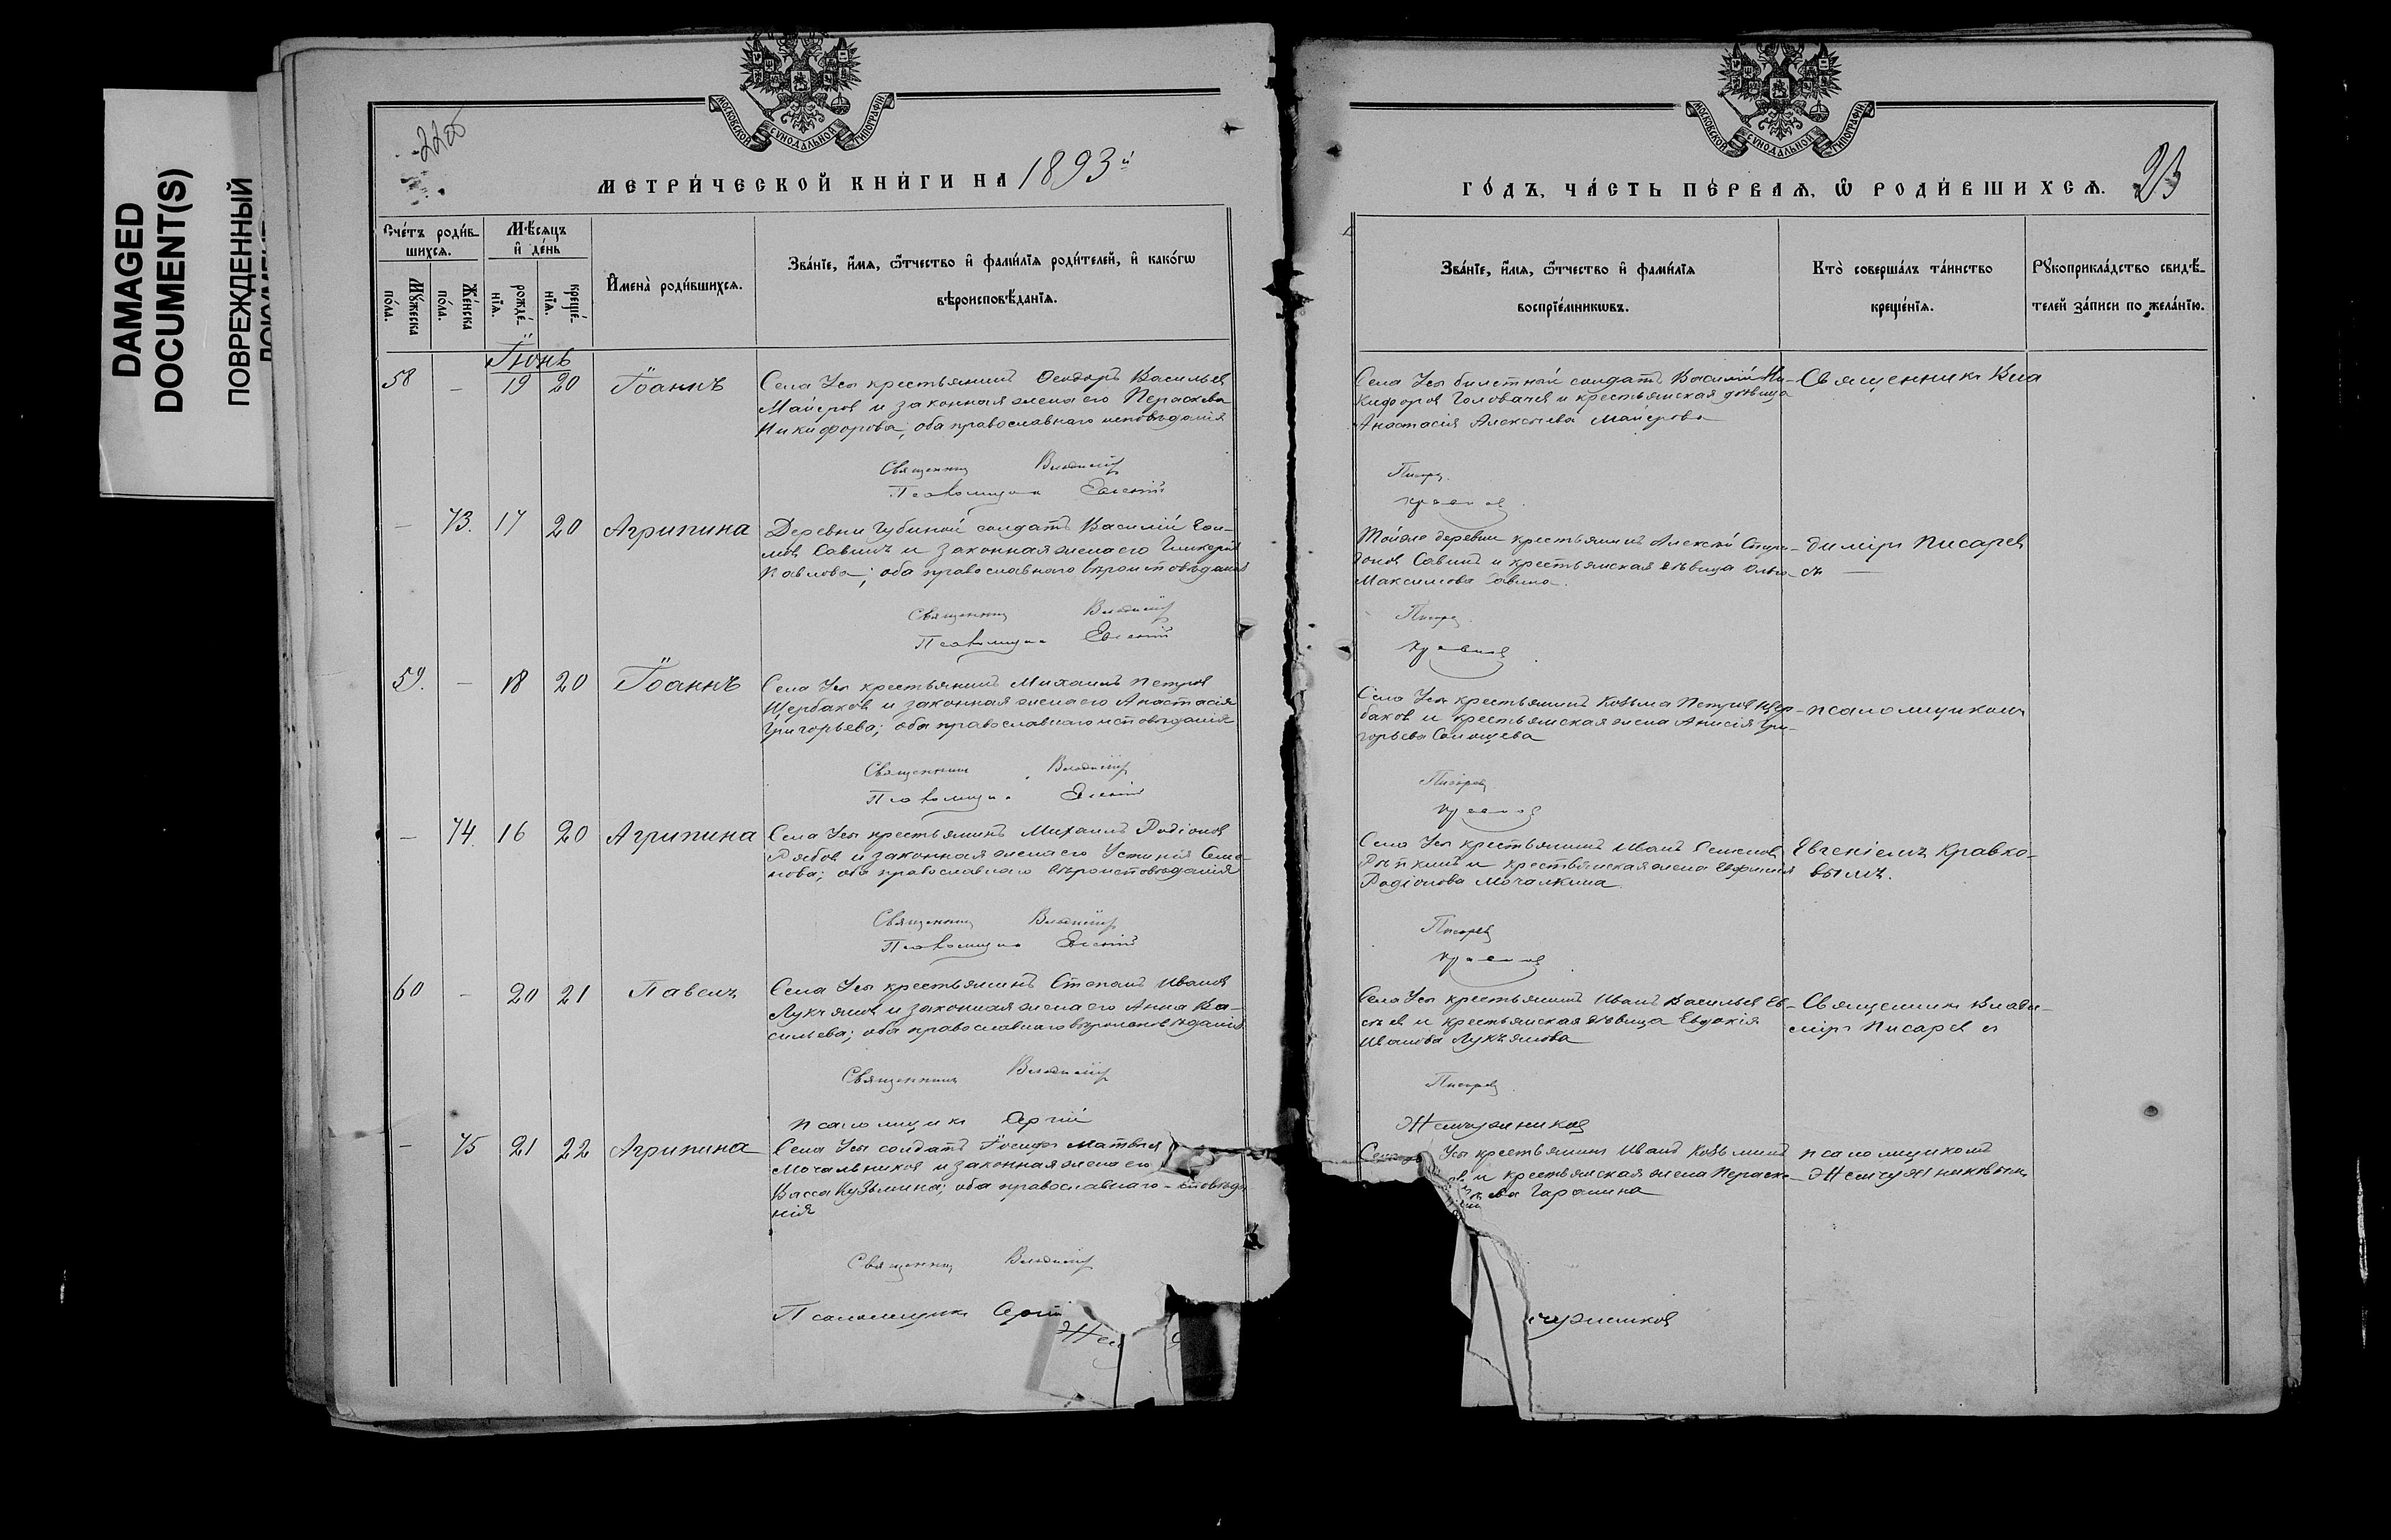 DAMAGED
DOCUMENT(S)
ПОВРЕЖДЕННЫЙ
МОСКОВСКОЙ СѴНОДАЛЬНОЙ ТИПОГРАФІИ
22об
МЕТРИ́ЧЕСКОЙ КНИ́ГИ НА 1893й
Сче́тъ роди́в-
шихся.
Мѣ́сяцъ
и҆ де́нь
Мꙋ́жеска
по́ла.
Же́нска
по́ла.
рожде́-
нїя.
креще́-
нїя.
И҆мена̀ роди́вшихся.
Зва́нїе, и҆́мя, ѻ҆́тчество и҆ фами́лїя роди́телей, и҆ како́гѡ
вѣроисповѣ́данїя.
Іюнь
58 — 19 20 Іоаннъ
Села Усы крестьянинъ Ѳеодоръ Васильевъ
Майеровъ и законная жена его Параскева
Никифорова; оба православнаго исповѣданія
Священникъ Владиміръ
Псаломщикъ Евгеній
— 73. 17 20 Агрипина
Деревни Губиной солдатъ Василій
Савинъ и законная жена его Гликерія
Павлова; оба православнаго вѣроисповѣданія
Священникъ Владиміръ
Псаломщикъ Евгеній
59. — 18 20 Іоаннъ
Села Усы крестьянинъ Михаилъ Петровъ
Щербаковъ и законная жена его Анастасія
Григорьева; оба православнаго исповѣданія
Священникъ Владиміръ
Псаломщикъ Евгеній
— 74. 16 20 Агрипина
Села Усы крестьянинъ Михаилъ Родіоновъ
Рябовъ и законная жена его Устинія Семе-
нова; оба православнаго вѣроисповѣданія
Священникъ Владиміръ
Псаломщикъ Евгеній
60 — 20 21 Павелъ
Села Усы крестьянинъ Степанъ Ивановъ
Лукъяновъ и законная жена его Анна Ва-
сильева; оба православнаго вѣроисповѣданія
Священникъ Владиміръ
псаломщикъ Сергій
— 75 21 22 Агрипина
Села Усы солдатъ Іосифъ Матвѣевъ
Мочальниковъ и законная жена его
Васса Кузьмина; оба православнаго исповѣда
нія
Священникъ Владиміръ
Псаломщикъ Сергій
Жем
МОСКОВСКОЙ СѴНОДАЛЬНОЙ ТИПОГРАФІИ
ГО́ДЪ, ЧА́СТЬ ПЕ́РВАЯ, Ѡ҆ РОДИ́ВШИХСЯ. 23
Зва́нїе, и҆́мя, ѻ҆́тчество и҆ фами́лїя
воспрїе́мникѡвъ.
Кто̀ соверша́лъ та́инство
креще́нїя.
Рꙋкоприкла́дство свидѣ́-
телей за́писи по жела́нїю.
Села Усы билетный солдатъ Василій Ни-
кифоровъ Головачевъ и крестьянская дѣвица
Анастасія Алексѣева Майерова
Священникъ Вла
Писаревъ
Кравковъ
Тойже деревни крестьянинъ Алексѣй Спири-
доновъ Савинъ и крестьянская дѣвица Ольга
Максимова Савина.
диміръ Писаревъ
съ —
Писаревъ
Кравковъ
Села Усы крестьянинъ Козьма Петровъ Щер-
баковъ и крестьянская жена Анисія Гри-
горьева
псаломщикомъ
Писаревъ
Кравковъ
Села Усы крестьянинъ Иванъ Семеновъ
Рѣпкинъ и крестьянская жена Евфимія
Родіонова Мочалкина.
Евгеніемъ Кравко-
вымъ.
Писаревъ
Кравковъ
Села Усы крестьянинъ Иванъ Васильевъ Ев-
сѣевъ и крестьянская дѣвица Евдокія
Иванова Лукъянова
Священникъ Влади-
міръ Писаревъ съ
Писаревъ
Жемчужниковъ
Села Усы крестьянинъ Иванъ Козьминъ
и крестьянская жена Параске-
ва Гаранина
псаломщикомъ
Жемчужниковымъ
чужниковъ